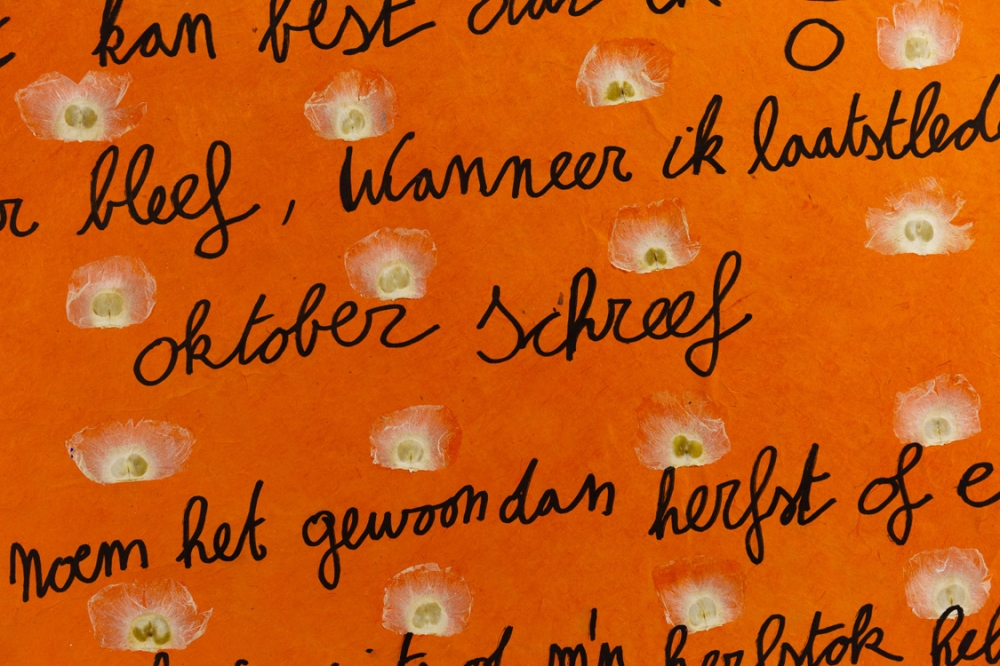 kan best dat ik
bleef, Wanneer ik laatstled
oktober schreef
noem het gewoon dan herfst of e
m'n herfstok heb